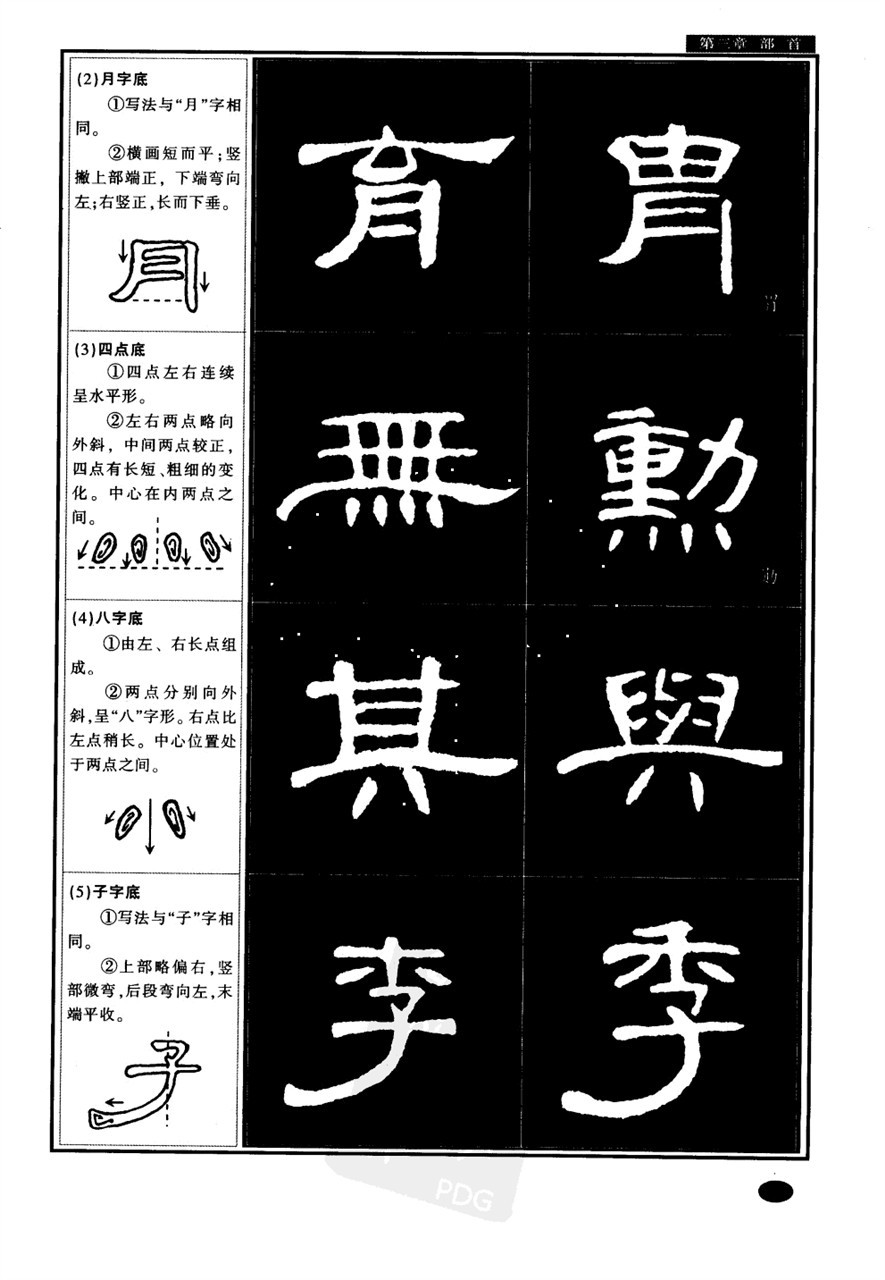 第三章 部 首
(2)月字底
①写法与“月”字相
同。
②横画短而平;竖
撇上部端正, 下端弯向
左;右竖正,长而下垂。
月
育 胄
胄
(3)四点底
①四点左右连续
呈水平形。
②左右两点略向
外斜, 中间两点较正,
四点有长短、粗细的变
化。中心在内两点之
间。
無 勳
勋
(4)八字底
①由左、右长点组
成。
②两点分别向外
斜,呈“八”字形。右点比
左点稍长。中心位置处
于两点之间。
其 與
(5)子字底
①写法与“子”字相
同。
②上部略偏右,竖
部微弯,后段弯向左,末
端平收。
子
李 季
PDG